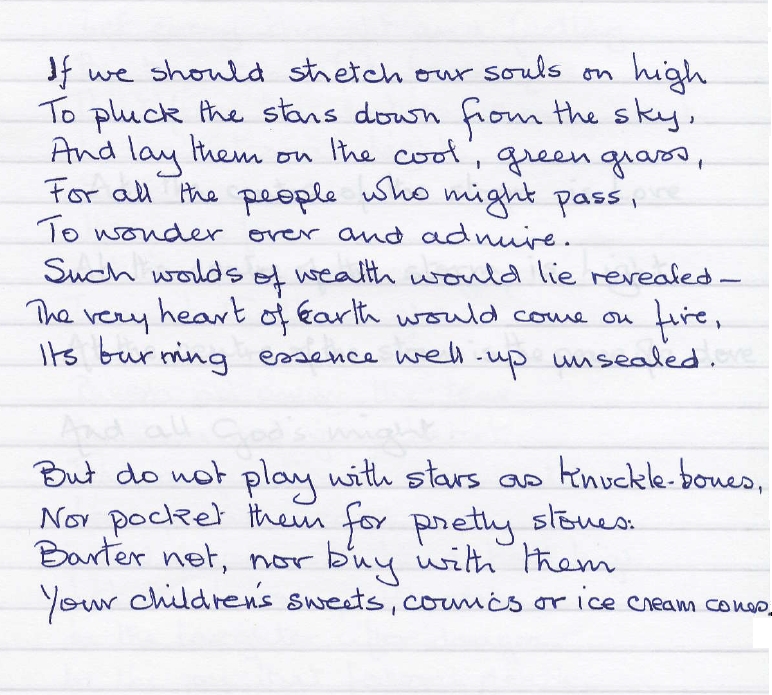 If we should stretch our souls on high
To pluck the stars down from the sky,
And lay them on the cool, green grass,
For all the people who might pass,
To wonder over and admire.
Such worlds of wealth would lie revealed –
The very heart of Earth would come on fire,
Its burning essence well-up unsealed.
But do not play with stars as knuckle-bones,
Nor pocket them for pretty stones:
Barter not, nor buy with them
Your children's sweets, comics or ice cream cones.